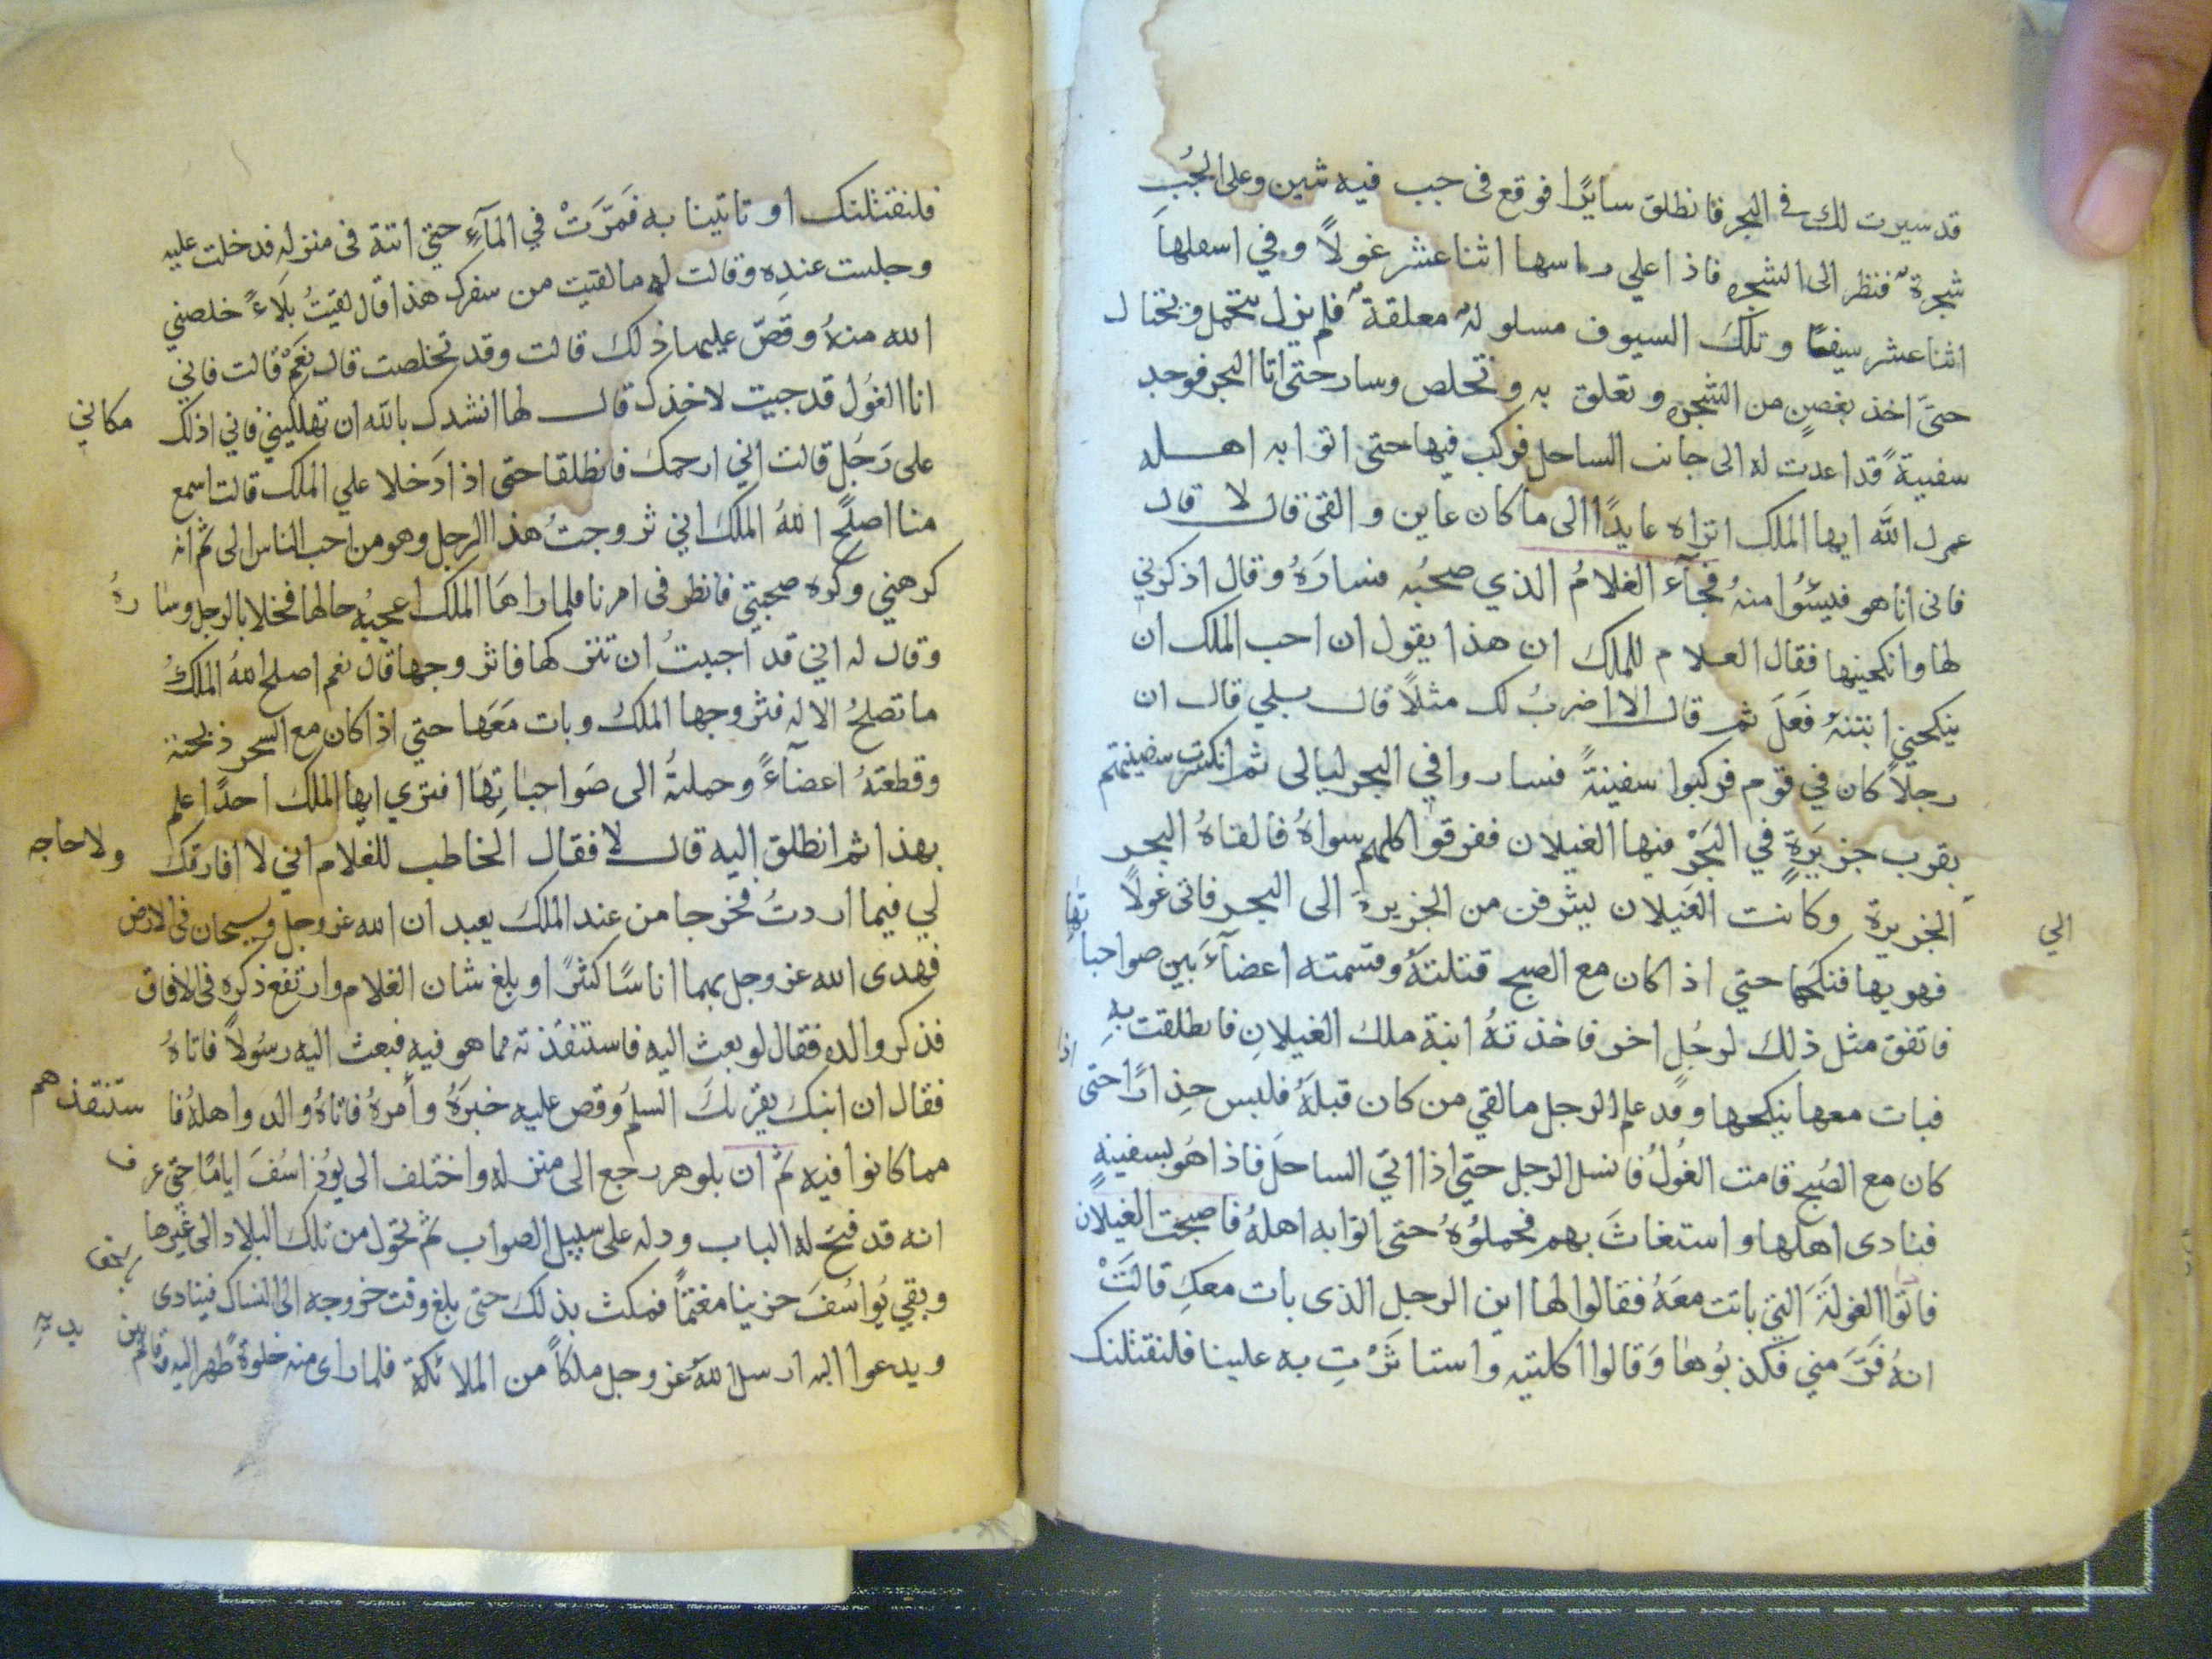 قد سيرت لك في البحر فانطلق سايرًا فوقع فى جب فيه تنين وعلى الجُب
شجرة فنظر الى الشجره فاذا علي راسها اثنا عشر غولاً وفي اسفلها
اثنا عشر سيفًا وتلك السيوف مسلوله معلقة فلم يزل يتحمل ويحتال
حتىَّ اخذ بغصنٍ من الشجره وتعلق به وتخلص وسار حتى اتا البحر فوجد
سفينةً قد اعدت له الى جانب الساحل فركب فيها حتى اتوا به اهله
عمرك الله ايها الملك اتراه عايدًا الى ما كان عاين والقى قال لا قال
فانى انا هو فيئسُوا منهُ فجآء الغلامُ الذي صحبُه فسارَهُ وقال اذكرني
لها وانكحينها فقال الغلام للملك ان هذا يقول ان احب الملك ان
ينكحني ابنتهُ فَعَلَ ثم قال الا اضربُ لك مثلاً قال بلي قال ان
رجلاً كان في قوم فركبوا سفينةً فساروا في البحر ليالى ثم انكسرت سفينتهم
بقرب جزيرَةٍ في البَحْرِ فيها الغيلان فغرقوا كلهم سواهُ فالقاهُ البحر
الي الجزيرة وكانت الغَيلان يشرفن من الجزيرة الى البحر فاتى غولاً
فهويها فنكحها حتي اذا كان مع الصبح قتلتهُ وقسمته اعضآءً بين صواحباتها
فاتفق مثل ذلك لرجُلٍ اخر فاخذتهُ ابنة ملك الغيلانِ فانطلقت بهِ
فبات معها ينكحها وقد علم الرجل ما لقي من كان قبلهُ فلبس حِذارًا حتى اذا
كان مع الصُبح قامت الغُولُ فانسل الرجل حتي اذا اتيَ الساحلَ فاذا هُو بسفينةٍ
فنادى اهلها واستغاثَ بهم فحملوُهُ حتى اتوا به اهلهُ فاصبحت الغيلان
فاتوا الغولةَ التيِ باتت معَهُ فقالوا لها اين الرجل الذى بات معكِ قالتْ
انهُ فَرَّ مني فكذبوُها وَقالوا اكلتيهِ واستاثرْتِ به علينا فلنقتلنك
فلنقتلنك او تاتينا به فَمرَّتْ في المآءِ حتي اتتهُ فى منزلهِ فدخلت عليه
وجلست عندِه وقالت له ما لقيت من سفرك هذا قال لقيتُ بلَاءً خلصني
الله منهُ وقصَّ عليها ذلك قالت وقد تخلصت قال نعَمْ قالت فاني
انا الغُول قد جيت لاخذك قال لها انشدك بالله ان تهلكيني فاني اذلك مكاني
على رَجُلٍ قالت اني ارحمك فانطلقا حتى اذا ادَخلا علي الملك قالت اسمع
منا اصلح اللهُ الملك اني تزوجتُ هذا الرجل وهو من احب الناس الى ثم انه
كرهني وكره صحبتي فانظر فى امرنا فلما راهَا الملك اعجبهُ حالها فخلا بالرجل وسارهُ
وقال له اني قد اجببتُ ان تتركها فاتزوجها قال نعم اصلح اللهُ الملكُ
ما تصلحُ الا له فتزوجها الملكُ وبات مَعَها حتي اذا كان مع السحر ذبحتهُ
وقطعَتهُ اعضآءً وحملتهُ الى صَواحباتِهَا افترى ايها الملك احدًا علم
بهذا ثم انطلق اليه قال لا فقال الخاطب للغلام اني لا افارقك ولا حاجه
لي فيما اردتُ فخرجا من عند الملك يعبدان الله عز وجل ويسيحان فى الارض
فهدى الله عز وجل بهما اناسًا كثيرًا وبلغ شان الغلام وارتفع ذكره فى الافاق
فذكر والده فقال لو بعث اليه فاستنقُذته مما هو فيه فبعث اليه رسُولاً فاتاهُ
فقال ان ابنك يقريك السلمُ وقص عليه خبَرَهُ وأمرهُ فاتاهُ والده واهلهُ فاستنقذهم
مما كانوا فيه ثم ان بلوهر رجع الى منزله واختلف الى يوُذاسُفَ ايامًا حتى عرف
انه قد فتحَ له الباب ودله على سبيل الصواب ثم تحول من تلك البلاد الى غيرها
وبقي يُواسُفَ حزينا مغتمًا فمكث بذلك حتى بلغ وقت خروجه الى النساك فينادى
ويدعوا اليه ارسل اللهُ عز وجل ملكاً من الملائكة فلما راى منه خلوةً ظهر اليه وقام بين يديه